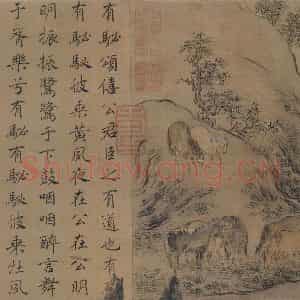 有駜頌僖公君臣之有道也有
有駜駜彼乘黄夙夜在公在公明
明振振鷺鷺于下鼓咽咽醉言舞
于胥樂兮有駜有駜駜彼乘牡夙
Shuhuawang.cn